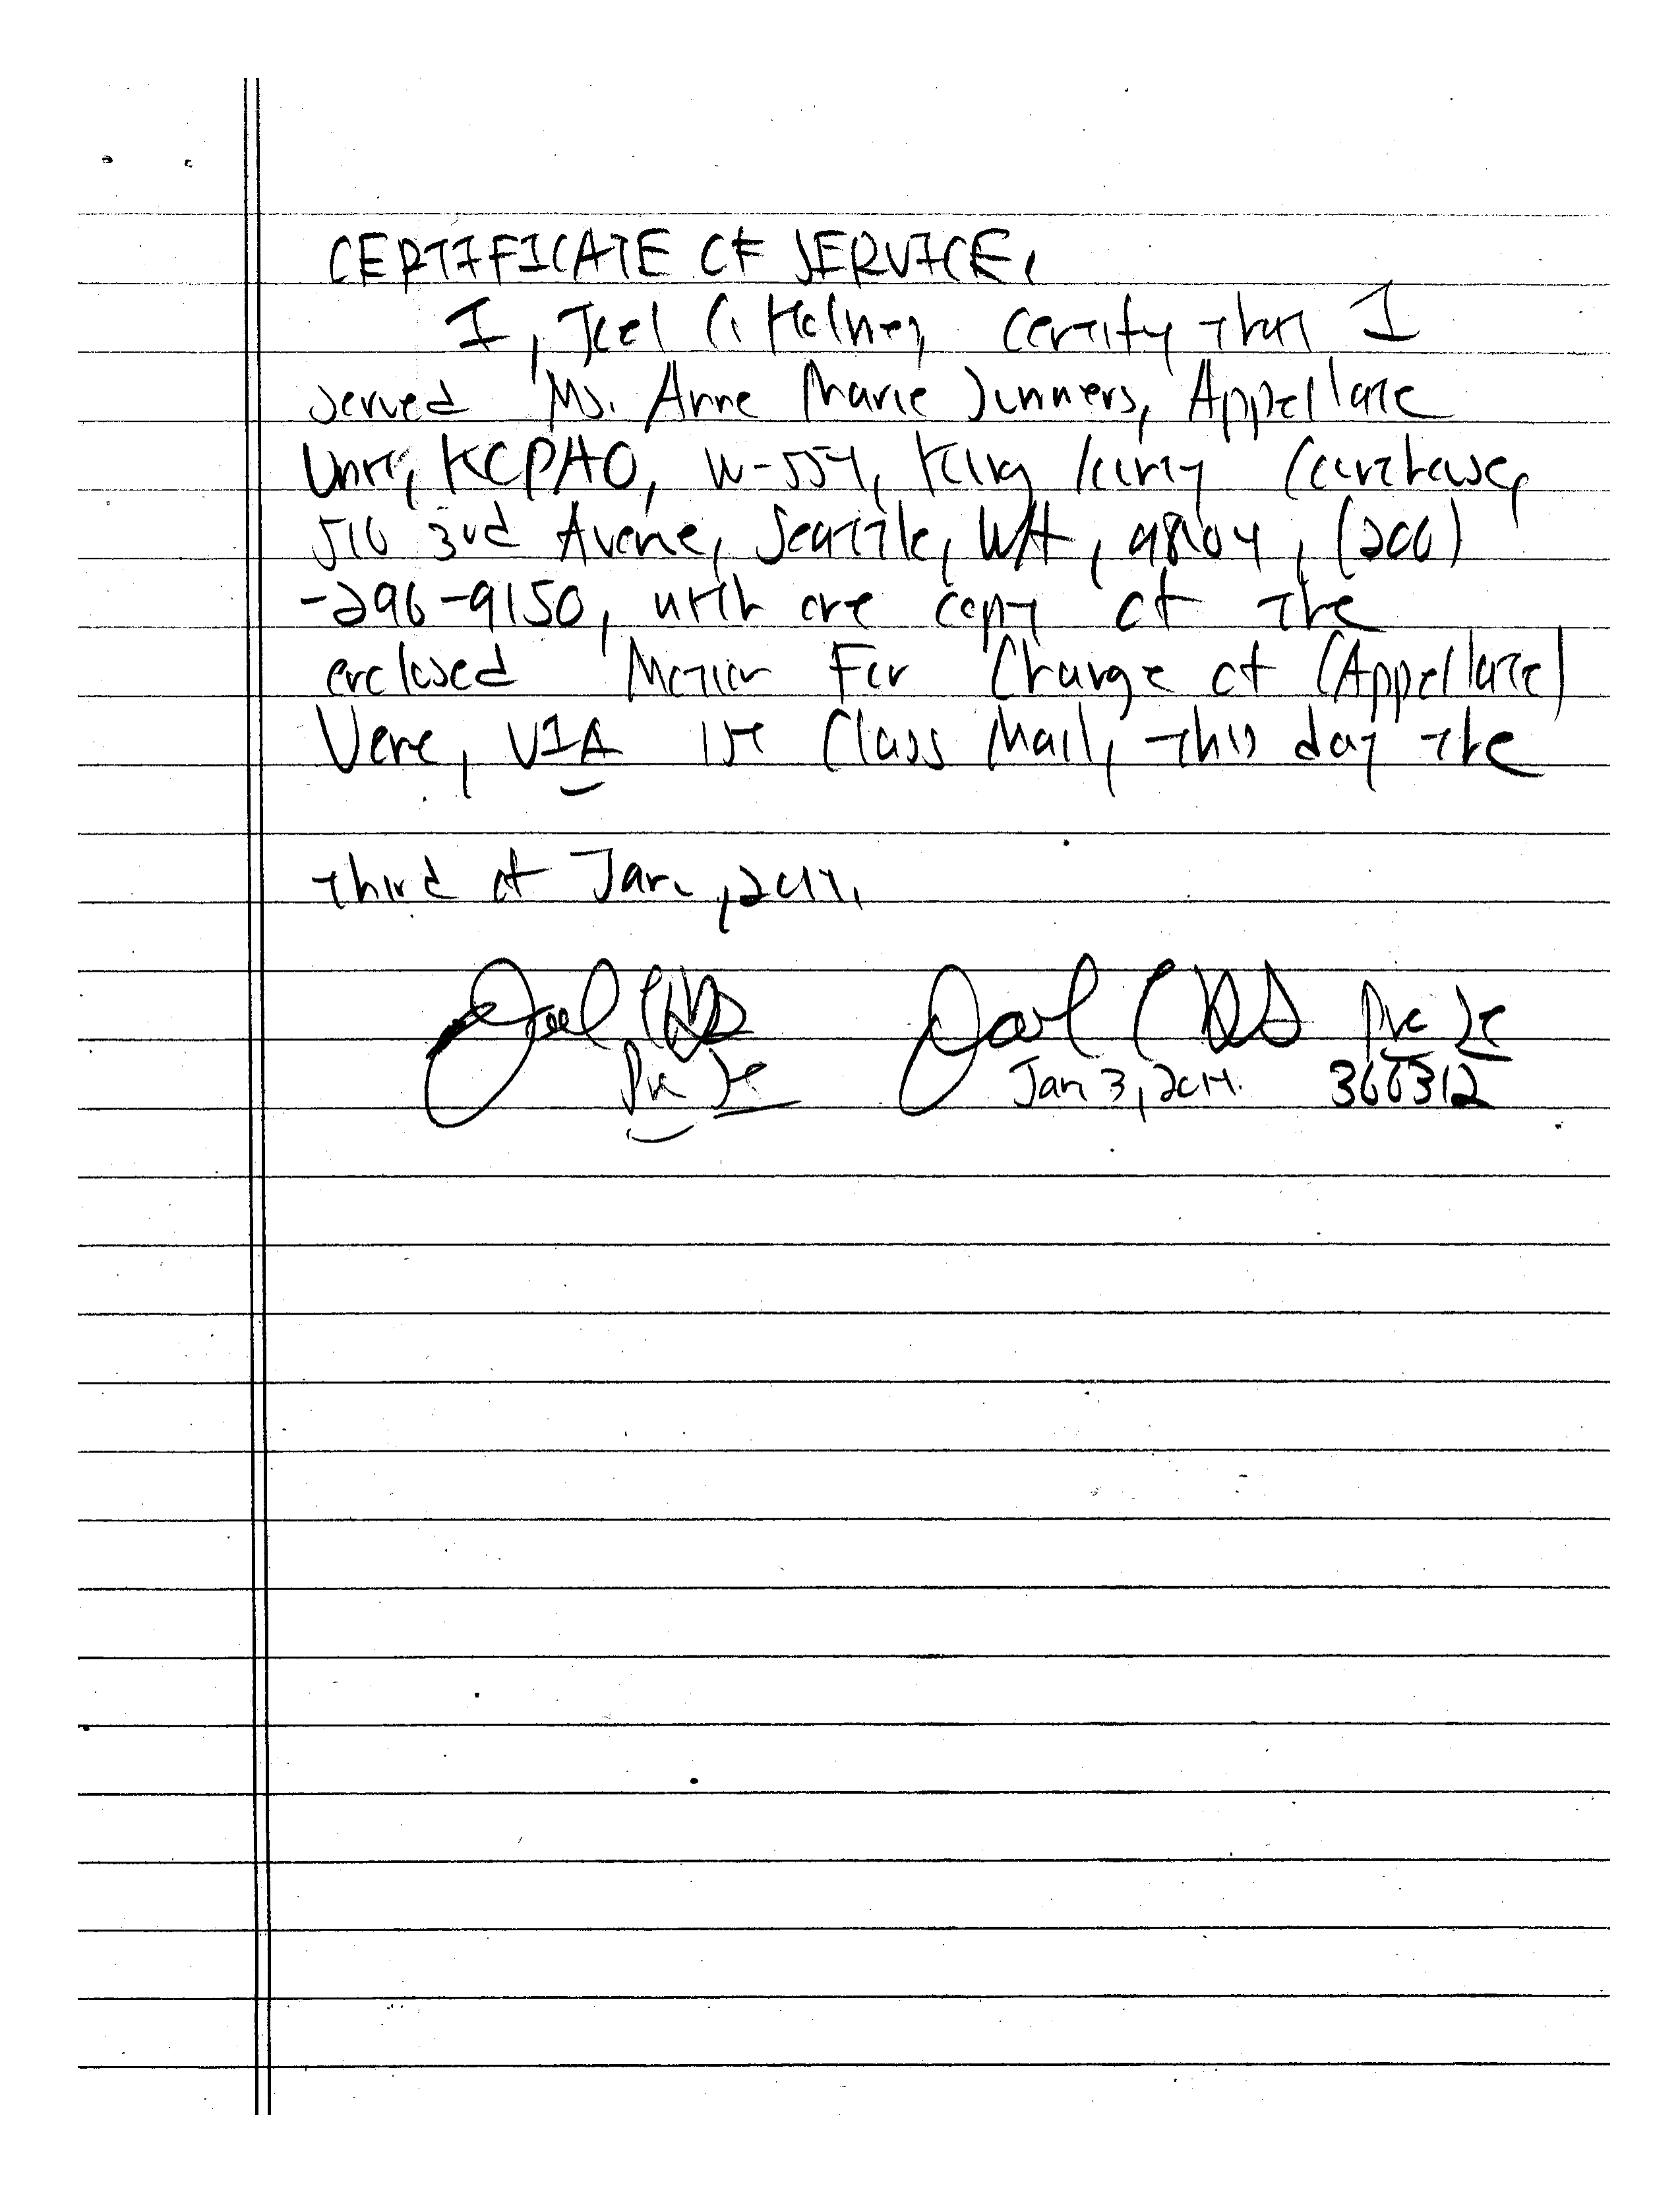 CERTIFICATE OF SERVICE,
I, Joel C. Holmes, certify that I
served Ms. Anne Marie Summers, Appellate
Unit, KCPAO, W-554, King County Courthouse,
516 3rd Avenue, Seattle, WA, 98104, (206)
-296-9150, with one copy of the
enclosed Motion For Change of (Appellate)
Venue, VIA 1st Class Mail, this day the
third of Jan., 2014.
Pro Se
Pro Se
Jan 3, 2014. 366312